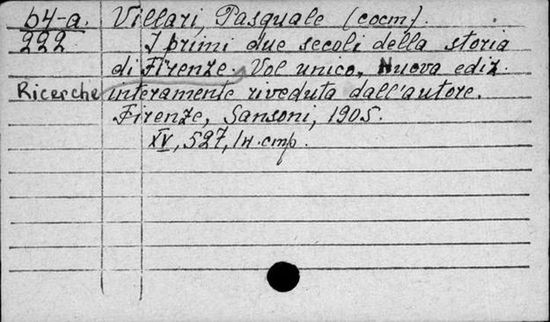 64-a. Villari, Pasquale (сост.).
222 I primi due secoli della storia
di Firenze. Vol unico, Nuova ediz.
Ricerche
interamente riveduta dall'autore.
Firenze, Sansoni, 1905.
XV, 527, IH. cmp.